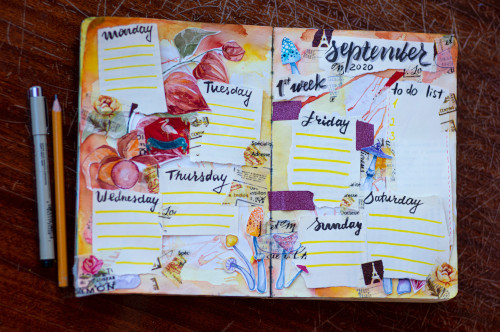 Monday
Tuesday
Wednesday
Thursday
MON
september
2020
1st week
to do list
Friday
Saturday
Sunday